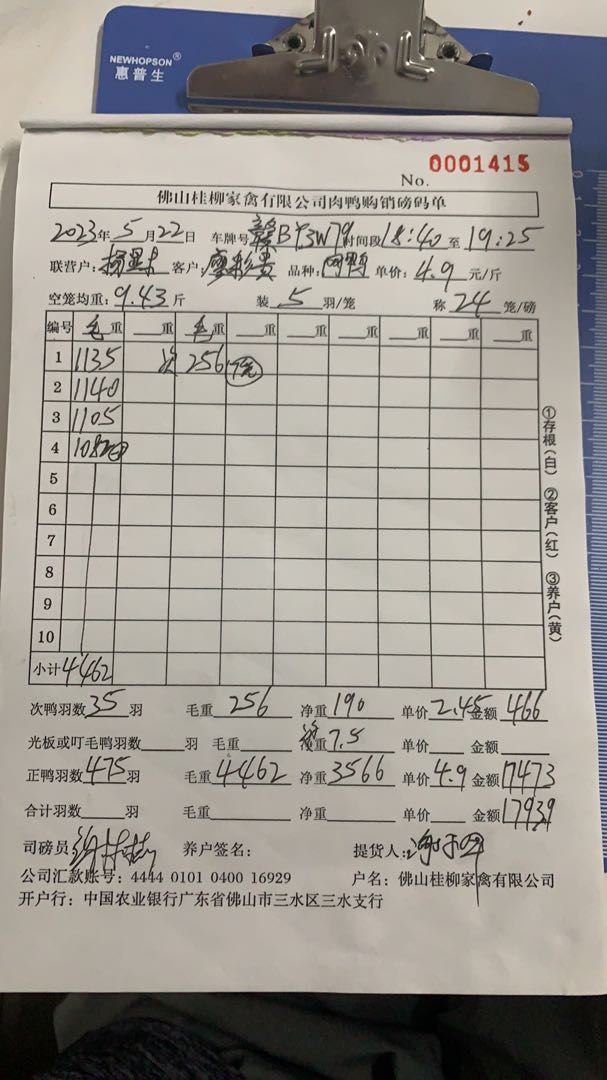 NEWHOPSON®
惠普生
No. 0001415
佛山桂柳家禽有限公司肉鸭购销磅码单
2023年5月22日 车牌号 赣BY3W79 时间段 18:40 至 19:25
联营户: 客户: 廖彩贵 品种: 肉鸭 单价: 4.9 元/斤
空笼均重: 9.43 斤 装 5 羽/笼 称 24 笼/磅
编号 毛重 重 毛重 重 重 重 重 重 重
1 1135 次 256
2 1140
3 1105
4 1082
5
6
7
8
9
10
小计 4462
①存根(白) ②客户(红) ③养户(黄)
次鸭羽数 35 羽 毛重 256 净重 190 单价 2.45 金额 466
光板或叮毛鸭羽数 羽 毛重 重 7.5 单价 金额
正鸭羽数 475 羽 毛重 4462 净重 3566 单价 4.9 金额 17473
合计羽数 羽 毛重 净重 单价 金额 17939
司磅员 养户签名: 提货人:
公司汇款账号: 4444 0101 0400 16929 户名: 佛山桂柳家禽有限公司
开户行: 中国农业银行广东省佛山市三水区三水支行